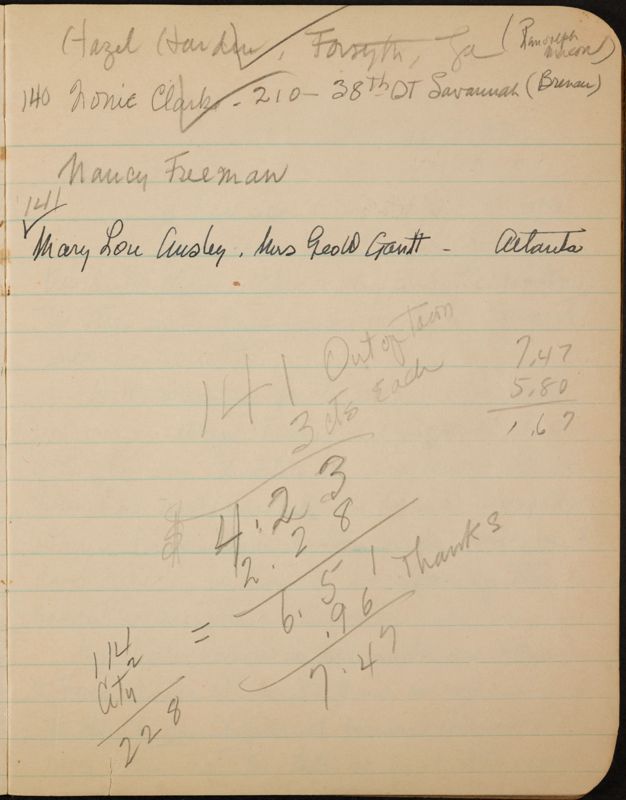 Hazel Hardin, Forsyth, Ga (Randolph Macon)
140 Nonie Clark - 210 - 38th ST Savannah (Brenau)
Nancy Freeman
141
Mary Lou Ansley. Mrs Geo W Gantt - Atlanta
141 Out of Town
3 cts Each
$ 4.23
2.28
= 6.51 Thanks
.96
7.47
7.47
5.80
1.67
114
2
City
228